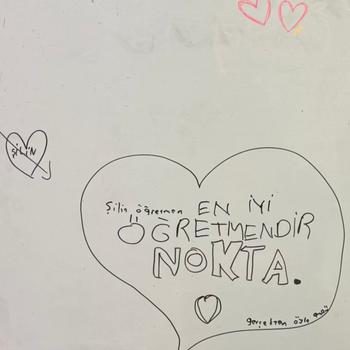 ŞiLiN
Şilin öğretmen EN İYİ
ÖĞRETMENDİR
NOKTA.
gerçekten öyle